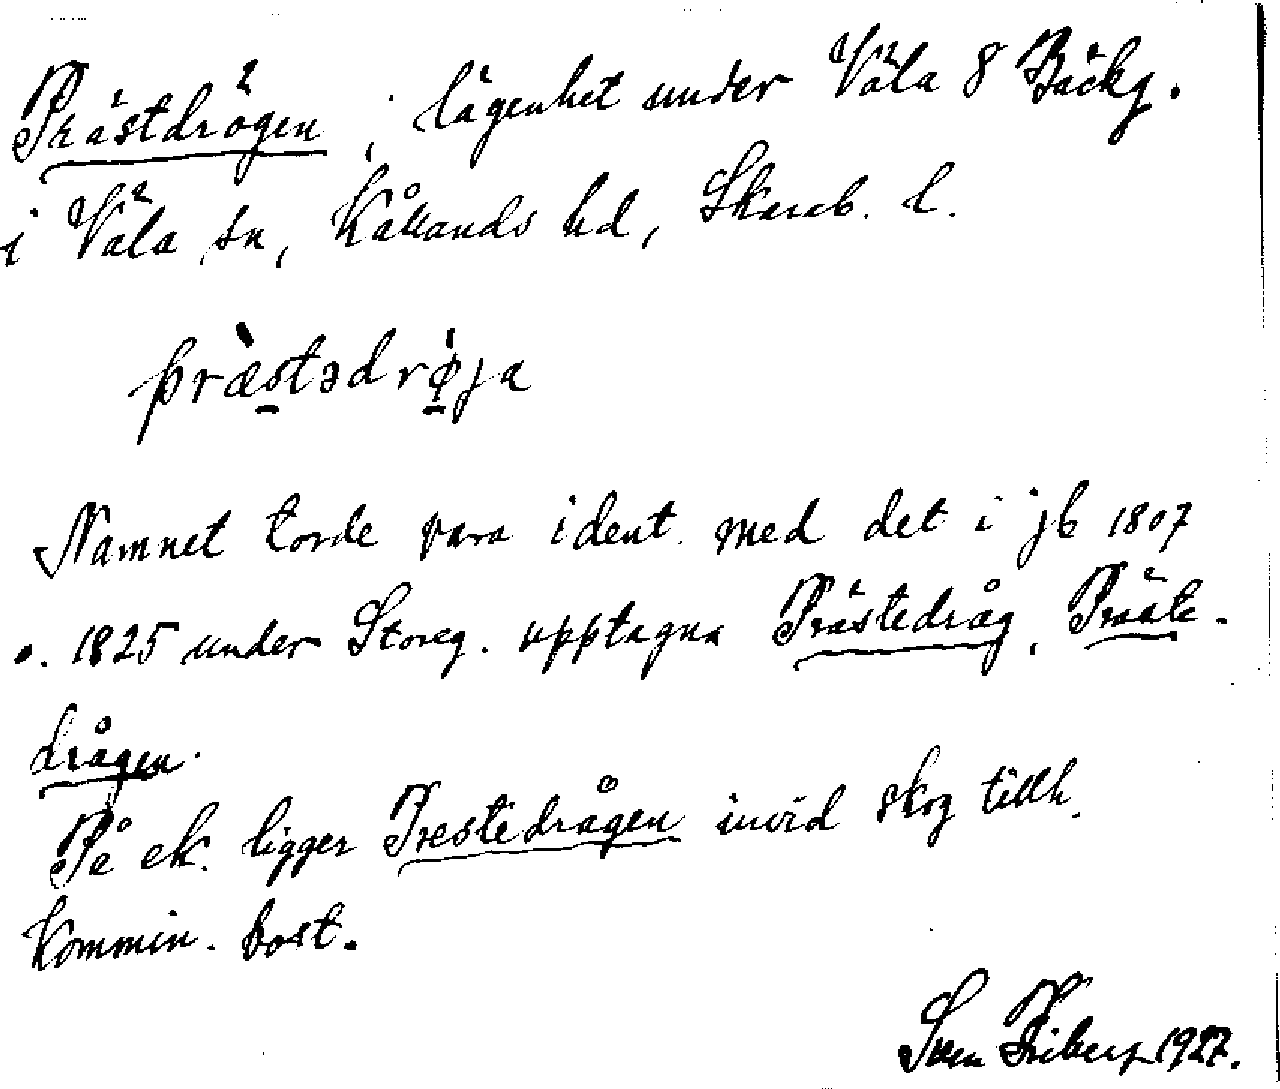 Prästdrögen, lägenhet under Väla 8 Bäckg.
i Väla sn, Kållands hd, Skarab. l.
præstədrøja
Namnet torde vara ident. med det i jb 1807
o. 1825 under Storeg. upptagna Prästedråg, Präste-
drågen.
På ek. ligger Prestedrågen invid skog tillh.
Kommin. bost.
Sven Friberg 1927.